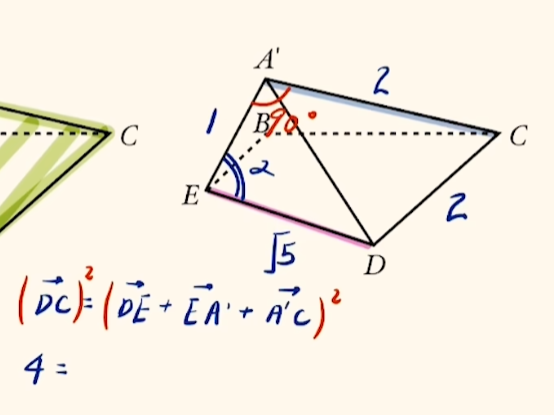 A'
2
1
B
90°
C
C
α
E
2
√5
D
(DC)² = (DE + EA' + A'C)²
4 =